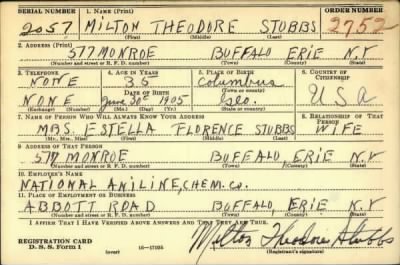 SERIAL NUMBER 1. NAME (Print) ORDER NUMBER
2057 MILTON THEODORE STUBBS 2752
(First) (Middle) (Last)
2. ADDRESS (Print)
577 MONROE BUFFALO ERIE N.Y
(Number and street or R. F. D. number) (Town) (County) (State)
3. TELEPHONE 4. AGE IN YEARS 5. PLACE OF BIRTH 6. COUNTRY OF CITIZENSHIP
NONE 35 Columbus
DATE OF BIRTH (Town or county)
NONE June 30th 1905 Geo. U S A
(Exchange) (Number) (Mo.) (Day) (Yr.) (State or country)
7. NAME OF PERSON WHO WILL ALWAYS KNOW YOUR ADDRESS 8. RELATIONSHIP OF THAT PERSON
MRS. ESTELLA FLORENCE STUBBS WIFE
(Mr., Mrs., Miss) (First) (Middle) (Last)
9. ADDRESS OF THAT PERSON
577 MONROE BUFFALO ERIE N.Y
(Number and street or R. F. D. number) (Town) (County) (State)
10. EMPLOYER'S NAME
NATIONAL ANILINE, CHEM. CO.
11. PLACE OF EMPLOYMENT OR BUSINESS
ABBOTT ROAD BUFFALO, ERIE N.Y
(Number and street or R. F. D. number) (Town) (County) (State)
I AFFIRM THAT I HAVE VERIFIED ABOVE ANSWERS AND THAT THEY ARE TRUE.
REGISTRATION CARD
D. S. S. Form 1 (over) 16—17105 Milton Theodore Stubbs
(Registrant's signature)